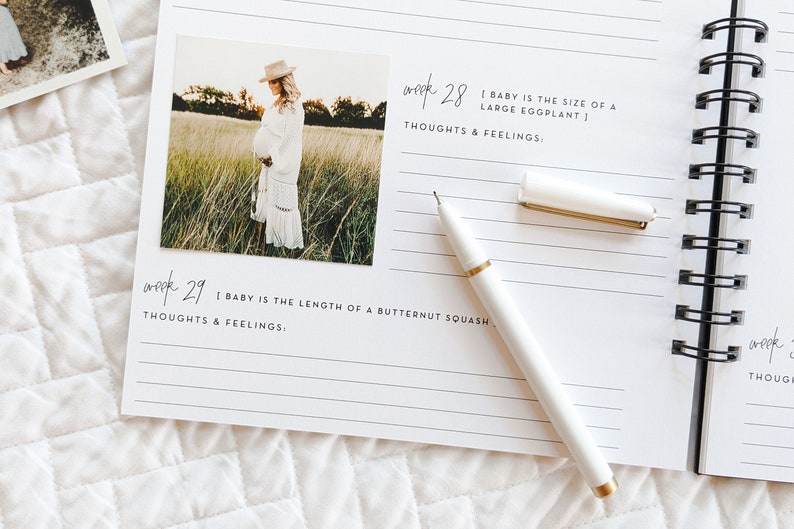 week 28 [ BABY IS THE SIZE OF A
LARGE EGGPLANT ]
THOUGHTS & FEELINGS:
week 29 [ BABY IS THE LENGTH OF A BUTTERNUT SQUASH ]
THOUGHTS & FEELINGS:
week
THOUG